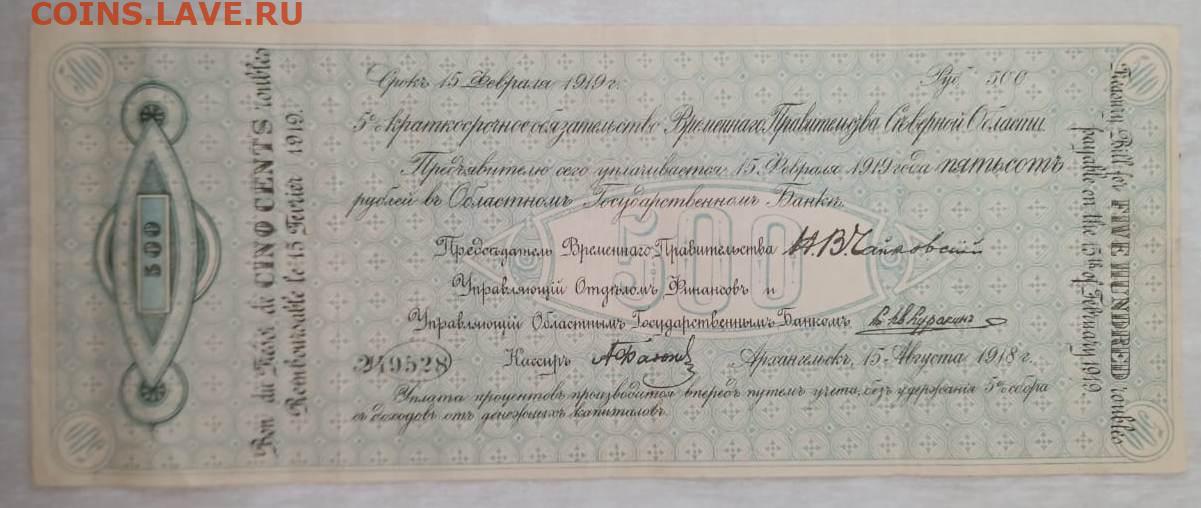 COINS.LAVE.RU
500
Bon du Trésor de CINQ CENTS roubles
Remboursable le 15 Fevrier 1919.
Срокъ 15 Февраля 1919 г. Руб. 500
5% краткосрочное обязательство Временнаго Правительства Сѣверной Области
Предъявителю сего уплачивается 15 Февраля 1919 года пятьсотъ
рублей въ Областномъ Государственномъ Банкѣ.
500
Предсѣдатель Временнаго Правительства Н.В. Чайковскій
Управляющій Отдѣломъ Финансовъ и
Управляющій Областнымъ Государственнымъ Банкомъ Куракинъ
249528 Кассиръ Архангельскъ, 15 Августа 1918 г.
Уплата процентовъ производится впередъ путемъ учета, безъ удержанія 5% сбора
съ доходовъ отъ денежныхъ капиталовъ.
Treasury Bill for FIVE HUNDRED roubles
payable on the 15th of February 1919.